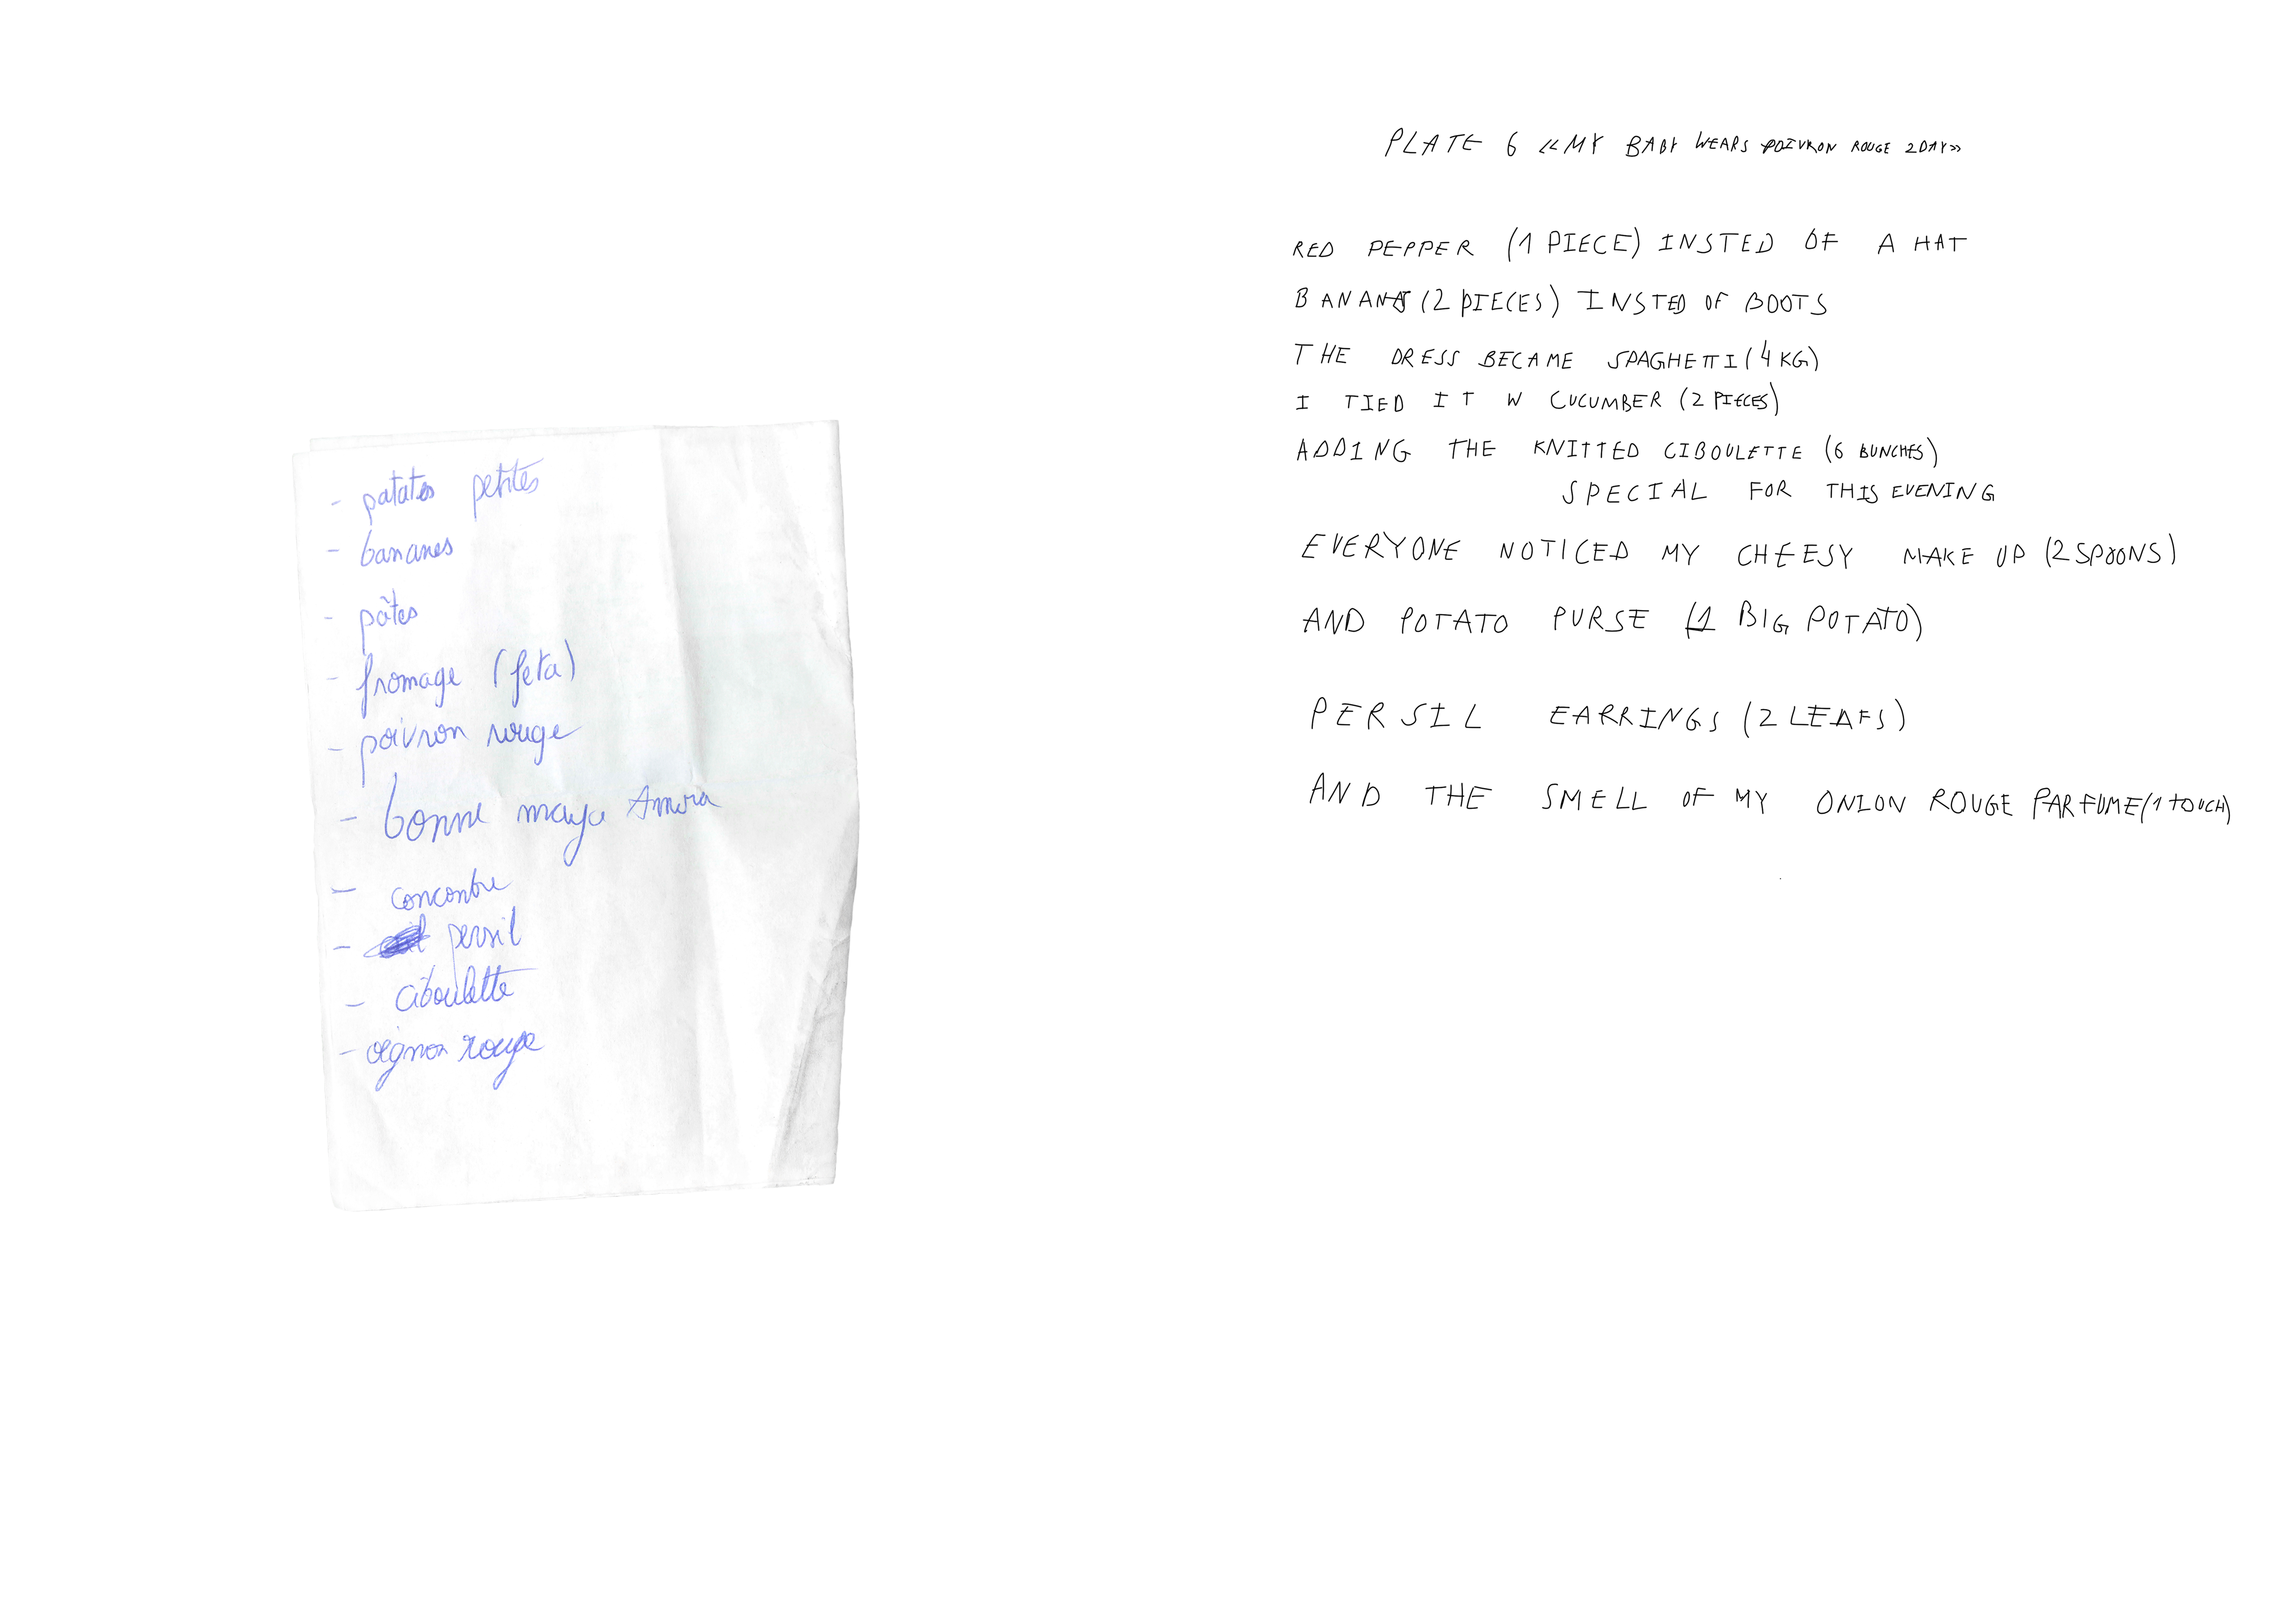 - patates petites
- bananes
- pâtes
- fromage (feta)
- poivron rouge
- bonne mayo Amora
- concontre
- persil
- ciboulette
- oignon rouge
PLATE 6 «MY BABY WEARS POIVRON ROUGE 2DAY»
RED PEPPER (1 PIECE) INSTED OF A HAT
BANANA (2 PIECES) INSTED OF BOOTS
THE DRESS BECAME SPAGHETTI (4 KG)
I TIED IT W CUCUMBER (2 PIECES)
ADDING THE KNITTED CIBOULETTE (6 BUNCHES)
SPECIAL FOR THIS EVENING
EVERYONE NOTICED MY CHEESY MAKE UP (2 SPOONS)
AND POTATO PURSE (1 BIG POTATO)
PERSIL EARRINGS (2 LEAFS)
AND THE SMELL OF MY ONION ROUGE PARFUME (1 TOUCH)